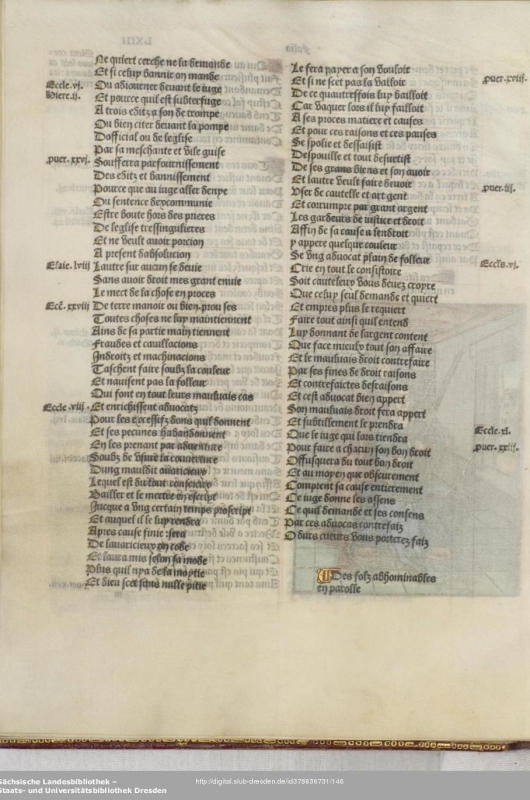 Ne quiert cerche ne la demande
Et si celuy bannie on mande
Eccle. vi.
Ou adiourner devant le iuge
Hiere. ij.
Et pource quil est subterfuge
A trois editz a son de trompe
Ou bien citer devant la pompe
Dofficial ou de leglise
Par sa meschante et vile guise
puer. xxvj.
Soufferra parfournissement
Des editz et bannissement
Pource que au iuge aller denye
Ou sentence dexcommunie
Estre boute hors des prieres
De leglise tressingulieres
Et ne veult avoir porcion
A present dabsolucion
Esaie. lviij
Lautre sur aucun se deuie
Sans avoir droit mes grant enuie
Le mect de la chose en proces
Ecc. xxviij
De terre manoir ou bien prou ses
Toutes choses ne luy maintiennent
Ains de sa partie main tiennent
Fraudes et cauillacions
Indroitz et machinacions
Taschent faire soubz la couleur
Et navisent pas la folleur
Qui font en tout leurs mauluais cas
Eccle. viij.
Et enrichissent aduocatz
Pour les excessifz dons quil donnent
Et ses pecunes habandonnent
En les prenant par aduenture
Soubz de vsure la couuerture
Dung mauldit auaricieux
Lequel est du tout
Bailler et le mectre en escript
Jucque a vng certain temps prescript
Et auquel il le luy rendra
Apres cause finie sera
De lauaricieux on robe
Et laura mis selon sa mode
Plus quil nya de la moytie
Et dieu scet sans nulle pitie
Le fera payer a son vouloir
puer. xviij.
Et si ne scet pas la valloir
De ce quautreffois luy bailloit
Car vaquer lors il luy failloit
A ses proces matiere et causes
Et pour ces raisons et ces pauses
Se spolie et dessaisist
Despouille et tout desuestist
De ses grans biens et son avoir
Et lautre veult faire deuoir
puer. iij.
User de cautelle et art gent
Et corrumpre par grant argent
Les gardeurs de iustice et droit
Affin de sa cause a lendroit
y appere quelque couleur
Eccls. vj.
Se vng aduocat plain de folleur
Crie en tout le consistoire
Soit cauteleux vous deuez croyre
Que celuy seul demande et quiert
Et empres plus le requiert
Faire tout ainsi quil entend
Luy donnant de largent content
Que face mieulx tout son affaire
Et le mauluais droit contrefaire
Par ses fines de droit raisons
Et contrefaictes defraisons
Et cest aduocat bien appert
Son mauluais droit fera appert
Et subtillement le prendra
Eccle. xl.
Que le iuge qui lors tiendra
puer. xxiij.
Pour faire a chacun son bon droit
Offusquera du tout bon droit
Et au moyen que obscurement
Comptent sa cause entierement
Ce iuge donne les assens
Ce quil demande et ses consens
Par ces aduocas contrefaiz
O durs cueurs vous porterez faiz
Des folz abhominables
en parolle
Sächsische Landesbibliothek –
Staats- und Universitätsbibliothek Dresden
http://digital.slub-dresden.de/id378636731/146